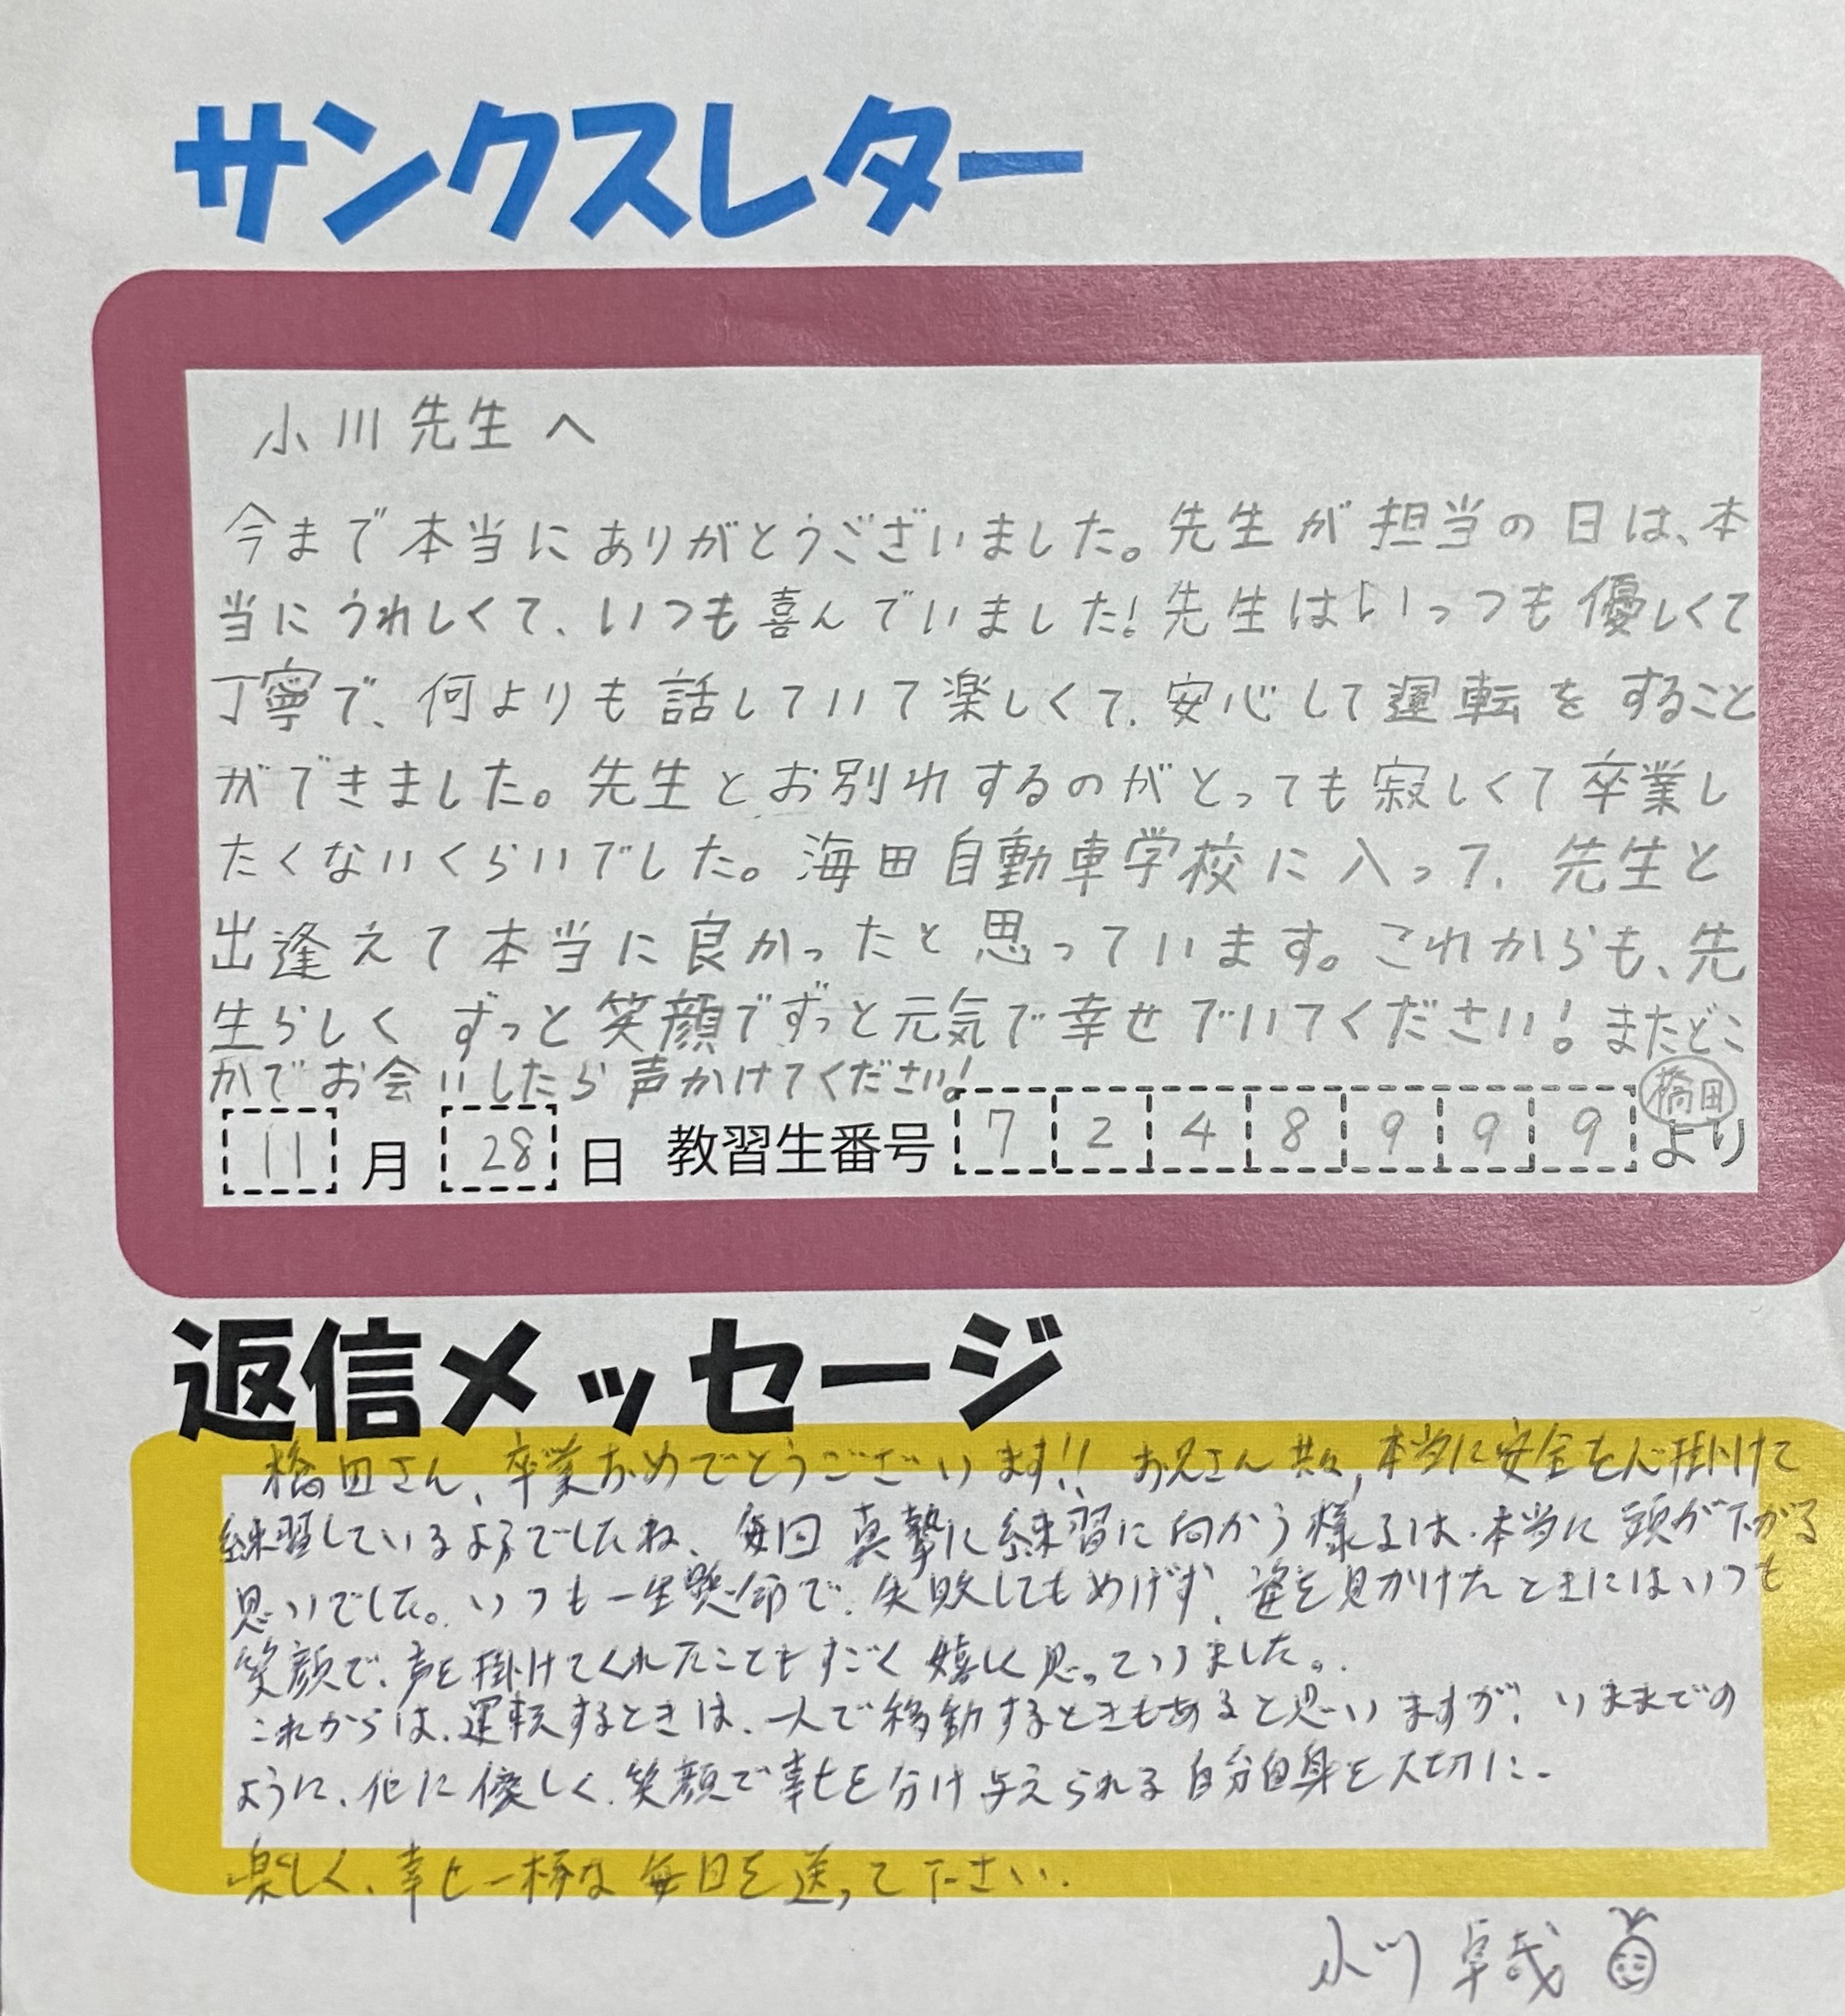 サンクスレター
小川先生へ
今まで本当にありがとうございました。先生が担当の日は、本
当にうれしくて、いつも喜んでいました!先生はいっつも優しくて
丁寧で、何よりも話していて楽しくて、安心して運転をすること
ができました。先生とお別れするのがとっても寂しくて卒業し
たくないくらいでした。海田自動車学校に入って、先生と
出逢えて本当に良かったと思っています。これからも、先
生らしくずっと笑顔でずっと元気で幸せでいてください!またどこ
かでお会いしたら声かけてください!
11月28日 教習生番号 7248999 橋田より
返信メッセージ
橋田さん、卒業おめでとうございます!! お兄さん共々,本当に安全を心掛けて
練習しているようでしたね、毎回真摯に練習に向かう様子は、本当に頭が下がる
思いでした。いつも一生懸命で、失敗してもめげず、姿を見かけたときにはいつも
笑顔で、声を掛けてくれたこともすごく嬉しく思っていました。
これからは、運転するときは、一人で移動するときもあると思いますが、いままでの
ように、他に優しく、笑顔で幸せを分け与えられる自分自身を大切に、
楽しく、幸せ一杯な毎日を送って下さい。
小川卓哉